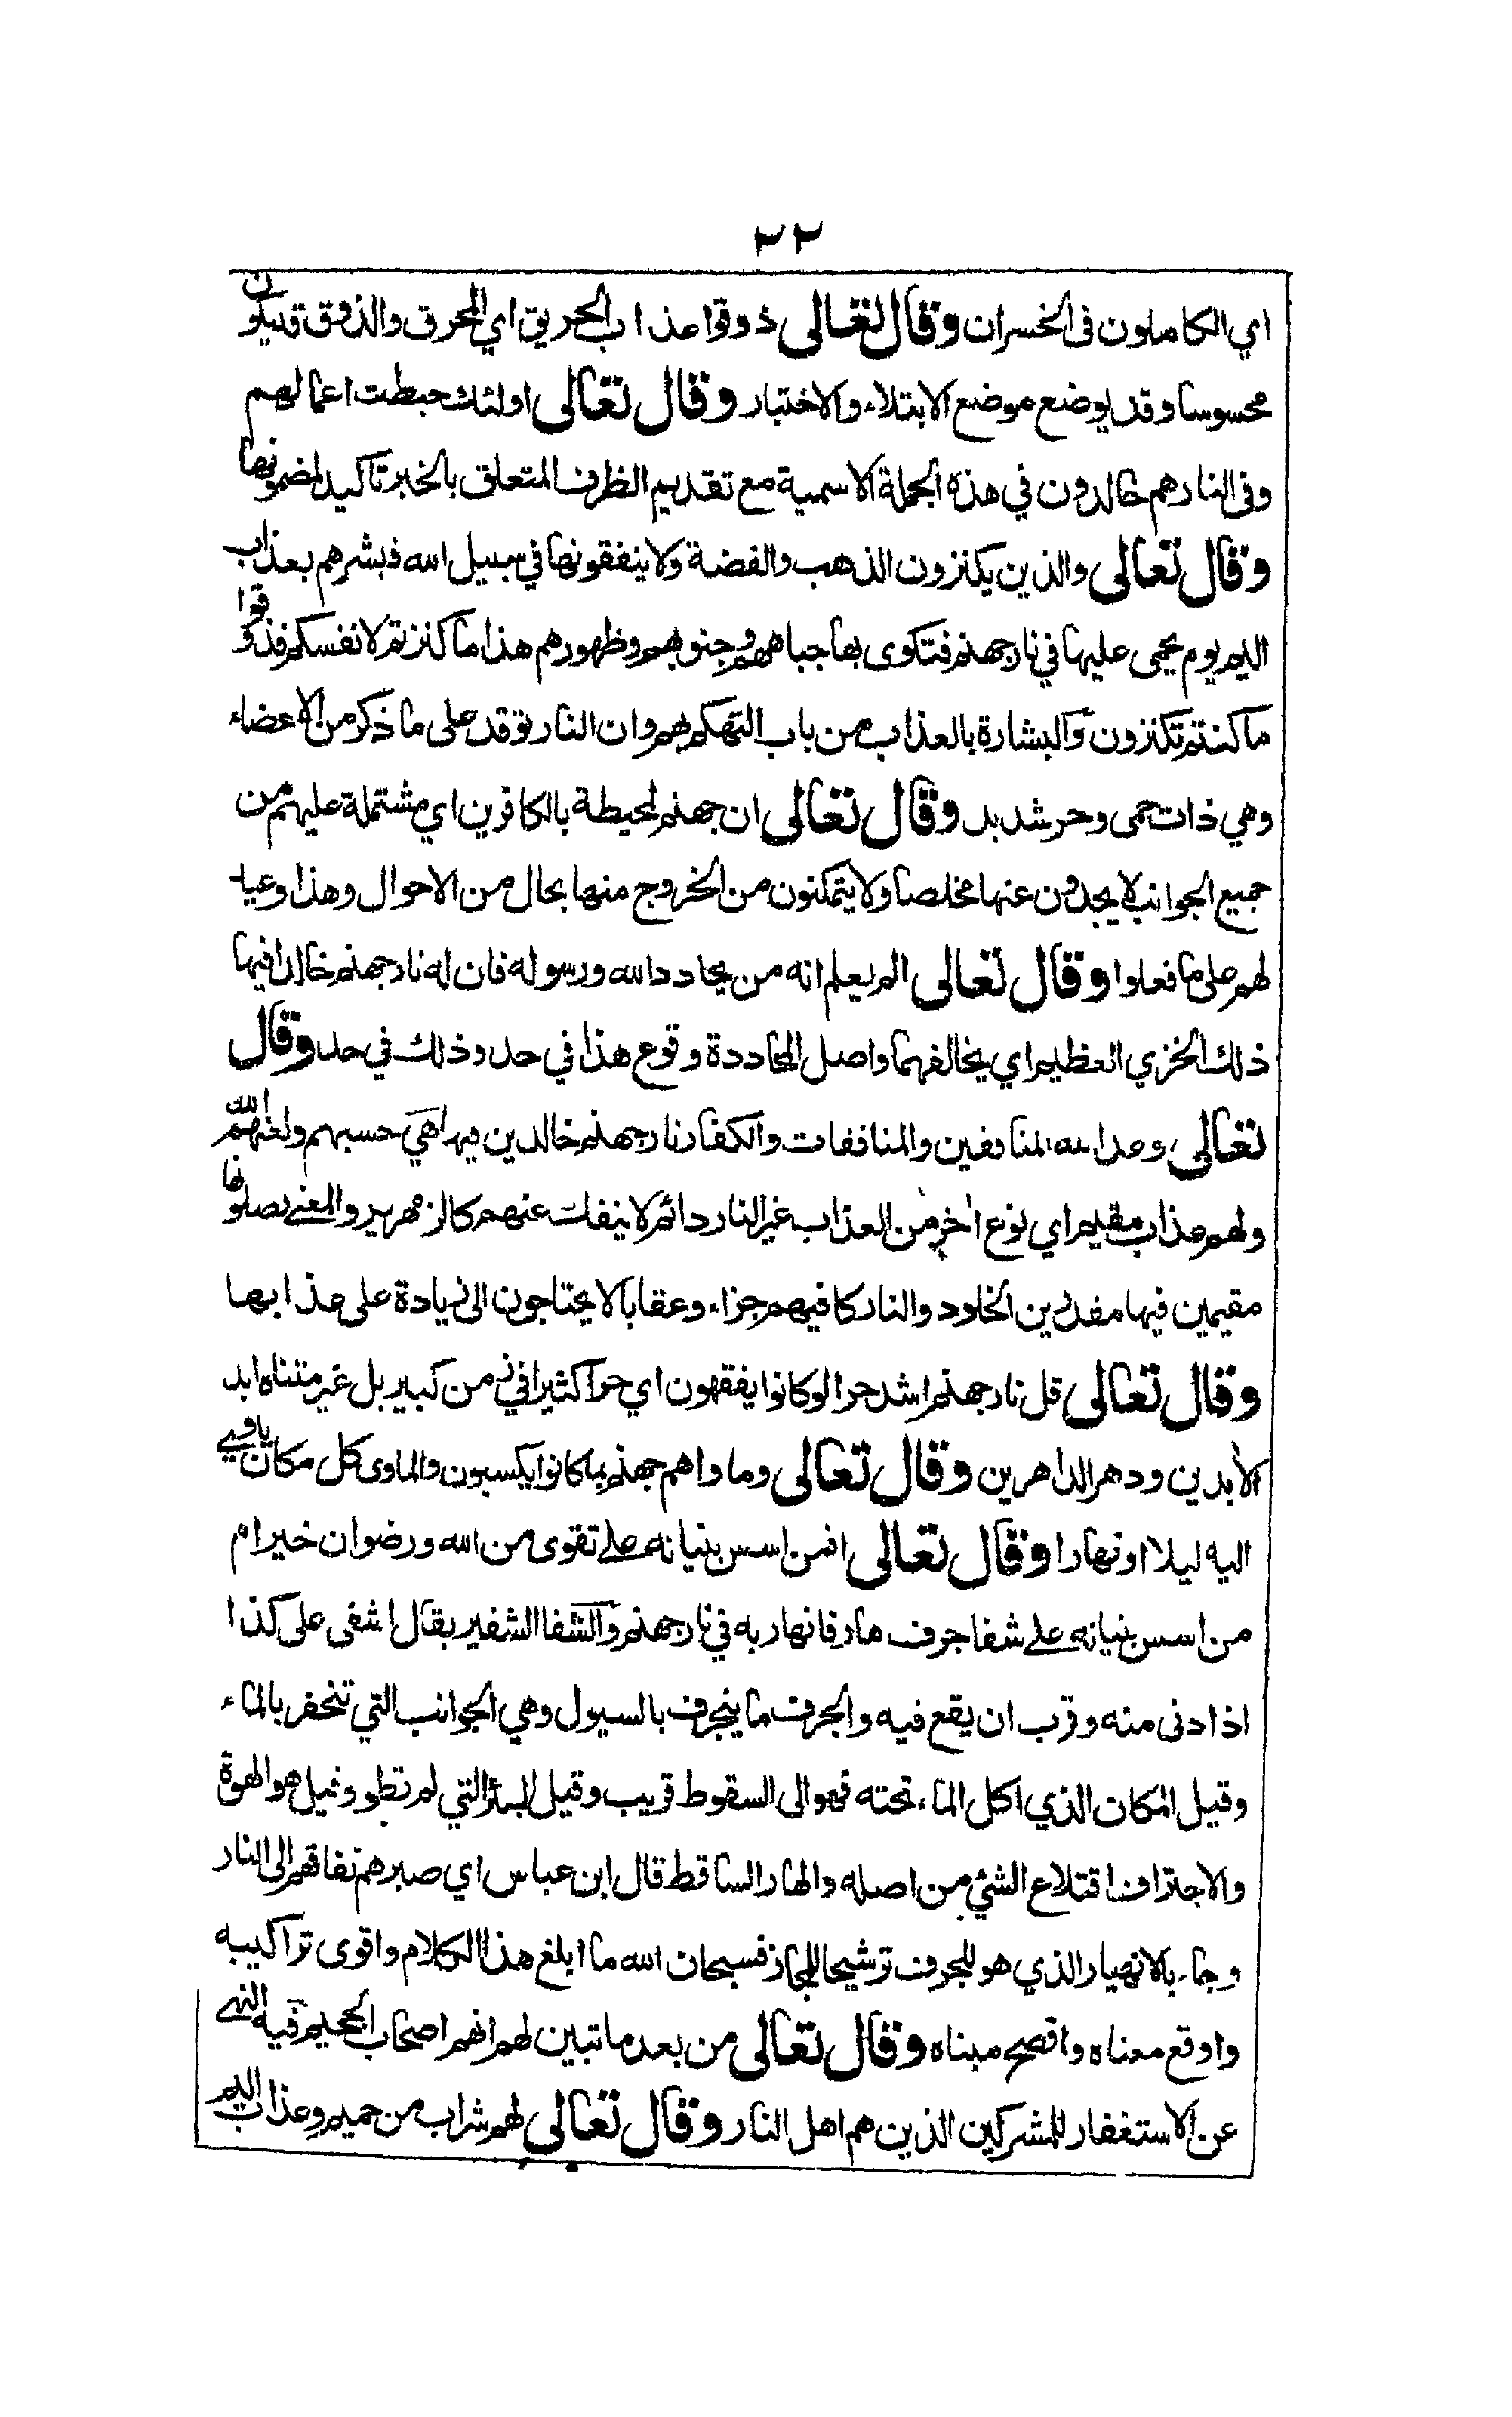 ٢٢
اي الكاملون في الخسران وقال تعالى ذوقوا عذاب الحريق اي المحرق والذوق قد يكون
محسوسا وقد يوضع موضع الابتلاء والاختبار وقال تعالى اولئك حبطت اعمالهم
وفى النار هم خالدون في هذه الجملة الاسمية مع تقديم الظرف المتعلق بالخبر تاكيد لمضمونها
وقال تعالى والذين يكنزون الذهب والفضة ولا ينفقونها في سبيل الله فبشرهم بعذاب
اليم يوم يحمى عليها في نار جهنم فتكوى بها جباههم وجنوبهم وظهورهم هذا ما كنزتم لانفسكم فذوقوا
ما كنتم تكنزون والبشارة بالعذاب من باب التهكم بهم وان النار توقد على ما ذكر من الاعضاء
وهي ذات حمى وحر شديد وقال تعالى ان جهنم لمحيطة بالكافرين اي مشتملة عليهم من
جميع الجوانب لا يجدون عنها مخلصا ولا يتمكنون من الخروج منها بحال من الاحوال وهذا وعيد
لهم على ما فعلوا وقال تعالى الم يعلم انه من يحادد الله ورسوله فان له نار جهنم خالدا فيها
ذلك الخزي العظيم اي يخالفهما واصل المحاددة وقوع هذا في حد وذلك في حد وقال
تعالى وعد الله المنافقين والمنافقات والكفار نار جهنم خالدين فيها هي حسبهم ولعنهم الله
ولهم عذاب مقيم اي نوع اخر من العذاب غير النار دائم لا ينفك عنهم كالزمهرير والمعنى يصلونها
مقيمين فيها مقدرين الخلود والنار كافيهم جزاء وعقابا لا يحتاجون الى زيادة على عذابها
وقال تعالى قل نار جهنم اشد حرا لو كانوا يفقهون اي حرا كثيرا في زمن كبير بل غير متناه ابد
الابدين ودهر الداهرين وقال تعالى وماواهم جهنم بما كانوا يكسبون والماوى كل مكان ياوي
اليه ليلا او نهارا وقال تعالى افمن اسس بنيانه على تقوى من الله ورضوان خير ام
من اسس بنيانه على شفا جرف هار فانهار به في نار جهنم والشفا الشفير يقال اشفى على كذا
اذا دنى منه وقرب ان يقع فيه والجرف ما ينجرف بالسيول وهي الجوانب التي تنحفر بالماء
وقيل المكان الذي اكل الماء تحته فهو الى السقوط قريب وقيل البئر التي لم تطو وقيل هو الهوة
والاجتراف اقتلاع الشئ من اصله والهار الساقط قال ابن عباس اي صيرهم نفاقهم الى النار
وجاء بالانهيار الذي هو للجرف ترشيحا للمجاز فسبحان الله ما ابلغ هذا الكلام واقوى تراكيبه
واوقع معناه وافصح مبناه وقال تعالى من بعد ما تبين لهم انهم اصحاب الجحيم فيه النهي
عن الاستغفار للمشركين الذين هم اهل النار وقال تعالى لهم شراب من حميم وعذاب اليم